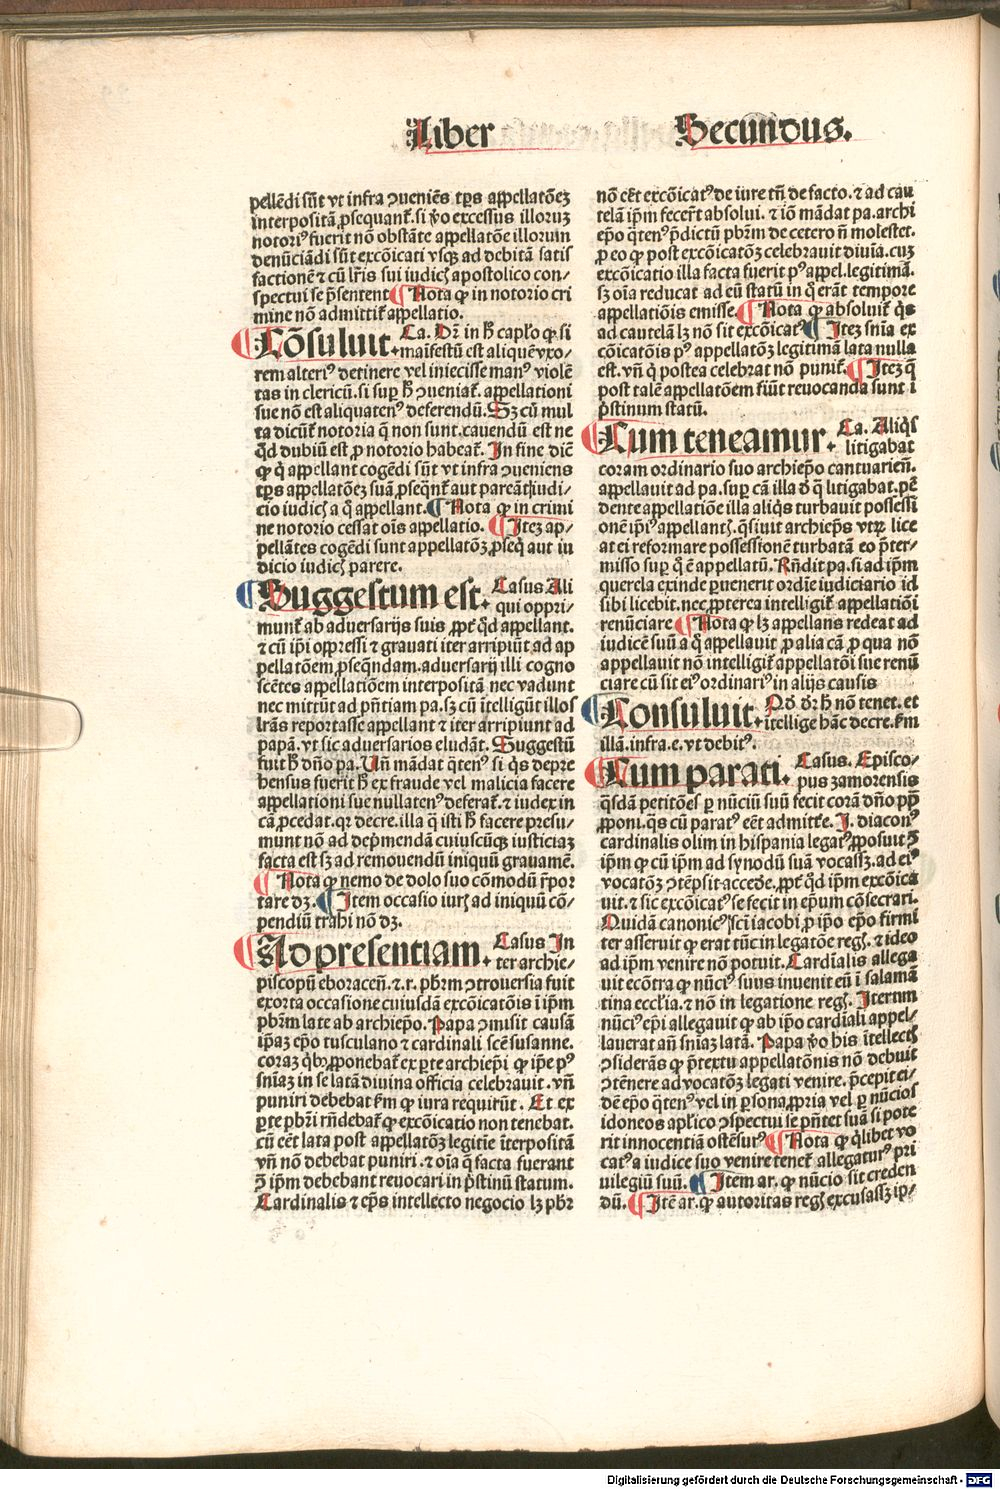 Liber Secundus.
pellēdi sūt vt infra ꝯueniēs tp̄s appellatōeʒ
interpositā ꝓsequant᷑. si v̄o excessus illoruʒ
notoriꝰ fuerit nō obstāte appellatōe illorum
denūciādi sūt excōicati vsqꝫ ad debitā satis
factionē ⁊ cū lr̄is sui iudicꝭ apostolico con⸗
spectui se p̄sentent ¶ Nota ꝙ in notorio cri
mine nō admittit᷑ appellatio.
¶ Cōsuluit. Ca. Dr̄ in h̄ cap̄lo ꝙ si
maīfestū est aliquē vxo⸗
rem alteriꝰ detinere vel iniecisse manꝰ violē
tas in clericū. si suꝑ h̄ ꝯueniat᷑. appellationi
sue nō est aliquatenꝰ deferendū. Sʒ cū mul
ta dicūt᷑ notoria q̄ non sunt. cauendū est ne
qd̄ dubiū est ꝓ notorio habeat᷑. In fine dic̄
ꝙ q̄ appellant cogēdi sūt vt infra ꝯueniens
tp̄s appellatōeʒ suā ꝓseqn̄t᷑ aut pareāt iudi⸗
cio iudicꝭ a q̄ appellant. ¶ Nota ꝙ in crimi
ne notorio cessat oīs appellatio. ¶ Iteʒ ap⸗
pellātes cogēdi sunt appellatōʒ ꝓseq̄ aut iu
dicio iudicꝭ parere.
¶ Suggestum est. Casus Ali
qui oppri⸗
munt᷑ ab aduersarijs suis ꝓpt᷑ qd̄ appellant.
⁊ cū ip̄i opp̄ressi ⁊ grauati iter arripiūt ad ap
pellatōem ꝓseqn̄dam. aduersarij illi cogno
scētes appellatiōem interpositā nec vadunt
nec mittūt ad pn̄tiam pa. sʒ cū ītelligūt illos
lr̄as reportasse appellant ⁊ iter arripiunt ad
papā. vt sic aduersarios eludāt. Suggestū
fuit h̄ dn̄o pa. Vn̄ mādat qͣtenꝰ si q̄s depre
hensus fuerit h̄ ex fraude vel malicia facere
appellationi sue nullatenꝰ deferat᷑. ⁊ iudex in
cā ꝓcedat. qr decre. illa q̄ isti h̄ facere presu⸗
munt nō ad dep̄mendā cuiuscūqꝫ iusticiaʒ
facta est sʒ ad remouendū iniquū grauamē.
¶ Nota ꝙ nemo de dolo suo cōmodū r̄por
tare dʒ. ¶ Item occasio iurꝭ ad iniquū cō⸗
pendiū trahi nō dʒ.
¶ Ad presentiam. Casus In
ter archie⸗
piscopū eboraceñ. ⁊. r. pb̄rm ꝯtrouersia fuit
exorta occasione cuiusdā excōicatōis ī ip̄m
pb̄rm late ab archiep̄o. Papa ꝯmisit causā
ip̄aʒ ep̄o tusculano ⁊ cardinali sc̄e susanne.
coraʒ qͥbꝰ ꝓponebat᷑ ex ꝑte archiep̄i ꝙ ip̄e pꝰ
sn̄iaʒ in se latā diuina officia celebrauit. vn̄
puniri debebat ẜm ꝙ iura requirūt. Et ex
ꝑte pb̄ri rn̄debat᷑ ꝙ excōicatio non tenebat.
cū eēt lata post appellatōʒ legitīe īterpositā
vn̄ nō debebat puniri. ⁊ oīa q̄ facta fuerant
ꝯ̄ ip̄m debebant reuocari in p̄stinū statum.
Cardinalis ⁊ ep̄s intellecto negocio lʒ pb̄r
nō eēt excōicatꝰ de iure tn̄ de facto. ⁊ ad cau
telā ip̄m fecert̄ absolui. ⁊ iō mādat pa. archi
ep̄o qͣtenꝰ p̄dictū pb̄rm de cetero n̄ molestet.
ꝓ eo ꝙ post excōicatōʒ celebrauit diuīa. cuʒ
excōicatio illa facta fuerit pꝰ appel. legitimā.
sʒ oīa reducat ad eū statū in q̄ erāt tempore
appellatiōis emisse. ¶ Nota ꝙ absoluit᷑ q̄s
ad cautelā lʒ nō sit excōicatꝰ ¶ Iteʒ sn̄ia ex
cōicatōis pꝰ appellatōʒ legitimā lata nulla
est. vn̄ q̄ postea celebrat nō punit᷑. ¶ Iteʒ q̄
post talē appellatōem fiūt reuocanda sunt ī
p̄stinum statū.
¶ Cum teneamur. Ca. Aliq̄s
litigabat
coram ordinario suo archiep̄o cantuarieñ.
appellauit ad pa. suꝑ cā illa d̄ q̄ litigabat. pē
dente appellatiōe illa aliq̄s turbauit possessi
onē ip̄iꝰ appellantꝭ. q̄siuit archiep̄s vtrʒ lice
at ei reformare possessionē turbatā eo p̄ter⸗
misso suꝑ q̄ ē appellatū. Rn̄dit pa. si ad ip̄m
querela exinde ꝑuenerit ordīe iudiciario id
sibi licebit. nec ꝓpterea intelligit᷑ appellatiōi
renūciare ¶ Nota ꝙ lʒ appellans redeat ad
iudicē suū a q̄ appellauit ꝓ alia cā ꝓ qua nō
appellauit nō intelligit᷑ appellatōi sue renū
ciare cū sit eiꝰ ordinariꝰ in alijs causis
¶ Consuluit. Pō dr̄ h̄ nō tenet. et
ītellige hāc decre. ẜm
illā. infra. e. vt debitꝰ.
¶ Cum parati. Casus. Episco⸗
pus zamorensis
qͣsdā petitōes ꝑ nūciū suū fecit corā dn̄o pp̄
ꝓponi. q̄s cū paratꝰ eēt admitte᷑. I. diaconꝰ
cardinalis olim in hispania legatꝰ ꝓposuit ꝯ̄
ip̄m ꝙ cū ip̄m ad synodū suā vocassʒ. ad eiꝰ
vocatōʒ ꝯtēpsit accede᷑. ꝓpt᷑ qd̄ ip̄m excōica
uit. ⁊ sic excōicatꝰ se fecit in ep̄um cōsecrari.
Quidā canonicꝰ sc̄i iacobi ꝓ ip̄o ep̄o firmi
ter asseruit ꝙ erat tūc in legatōe regꝭ. ⁊ ideo
ad ip̄m venire nō potuit. Cardīalis allega
uit ecōtra ꝙ nūciꝰ suus inuenit eū ī salamā
tina eccl̄ia. ⁊ nō in legatione regꝭ. Iterum
nūciꝰ ep̄i allegauit ꝙ ab ip̄o cardīali appel⸗
lauerat an̄ sn̄iaʒ latā. Papa v̄o his ītellectꝭ
ꝯsiderās ꝙ p̄textu appellatōnis nō debuit
ꝯtēnere ad vocatōʒ legati venire. p̄cepit ei⸗
dē ep̄o qͣtenꝰ vel in ꝑsona ꝓpria vel ꝑ nūcios
idoneos ap̄lico ꝯspectui se pn̄tet suā si pote
rit innocentiā ostēsurꝰ ¶ Nota ꝙ q̄libet vo
catꝰ a iudice suo venire tenet᷑ allegaturꝰ pri
uilegiū suū. ¶ Item ar. ꝙ nūcio sit creden
dū. ¶ Itē ar. ꝙ autoritas regꝭ excusassʒ ip⸗
Digitalisierung gefördert durch die Deutsche Forschungsgemeinschaft - DFG